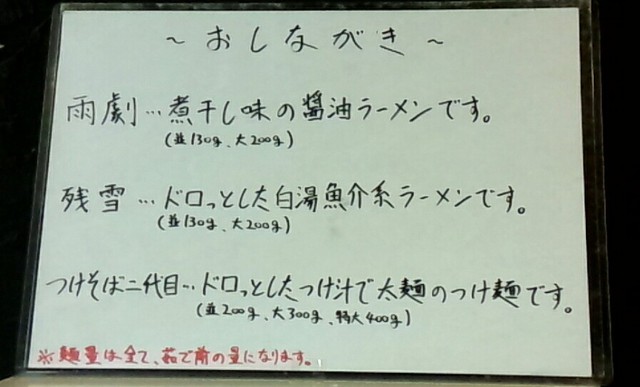 ～おしながき～
雨劇…煮干し味の醤油ラーメンです。
(並130g、大200g)
残雪…ドロっとした白湯魚介系ラーメンです。
(並130g、大200g)
つけそば二代目…ドロっとしたつけ汁で太麺のつけ麺です。
(並200g、大300g、特大400g)
※麺量は全て、茹で前の量になります。